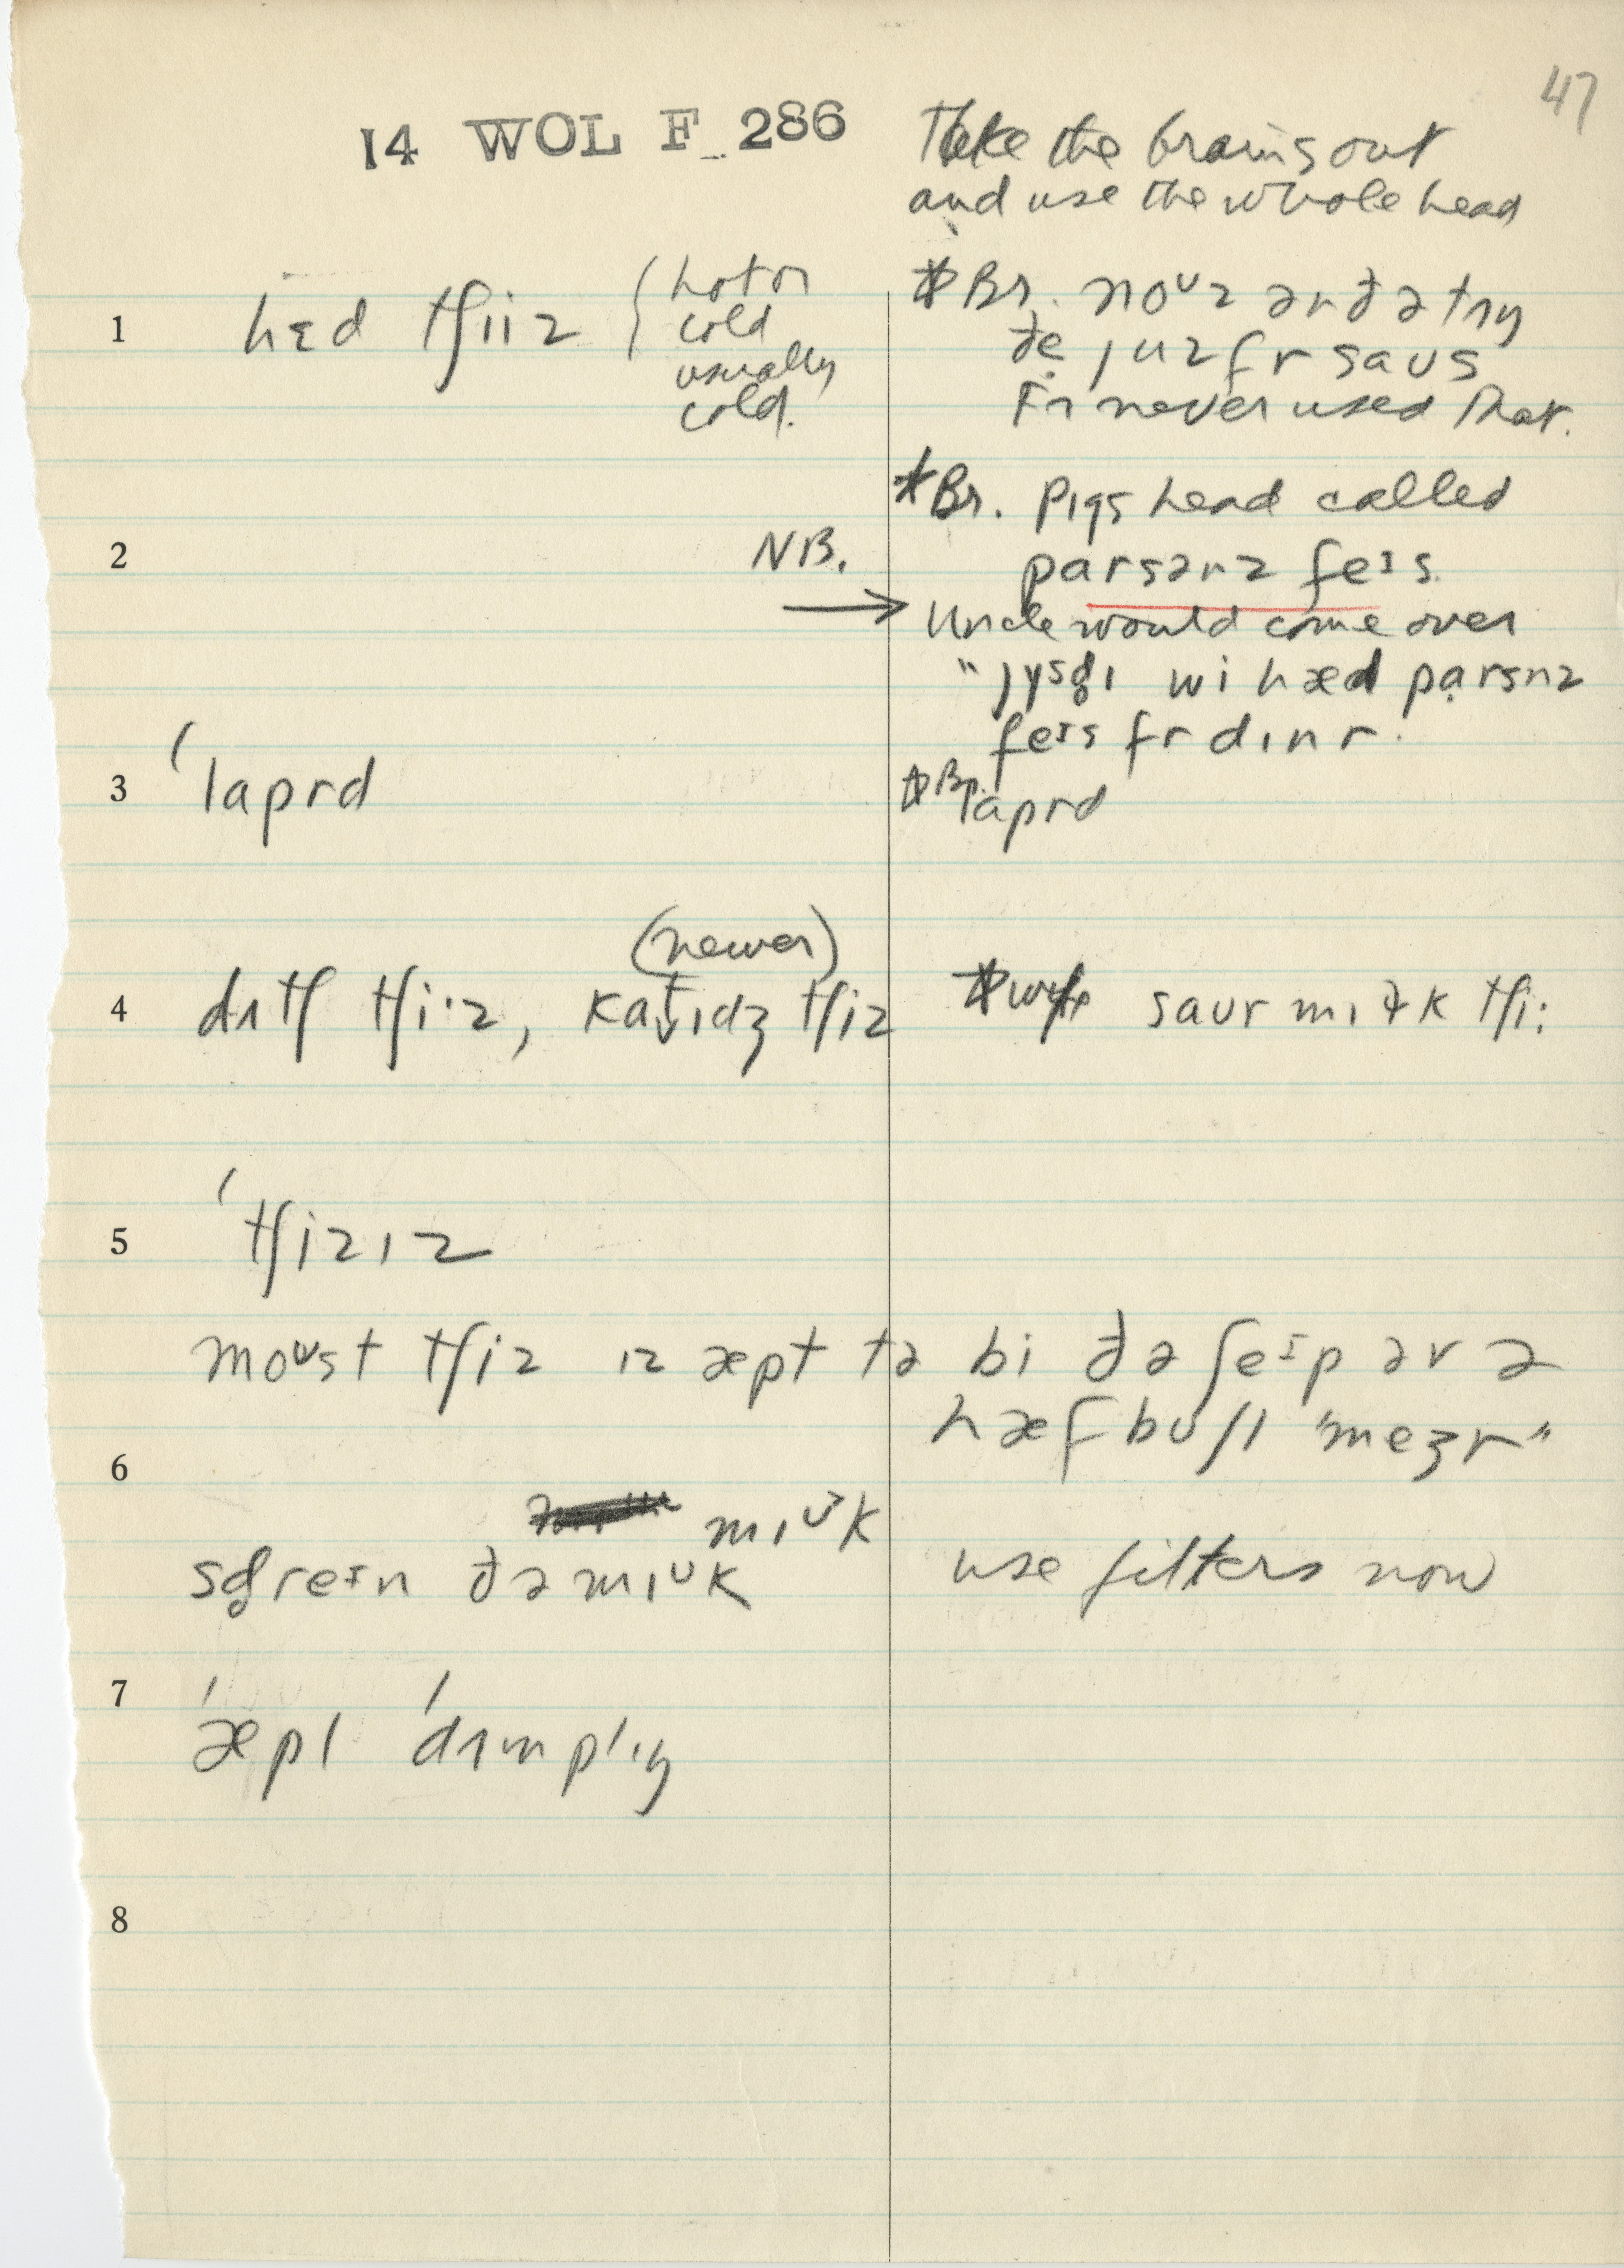 47
14 WOL F 286
Take the brains out
and use the whole head
1 hɛd tʃiiz ( hot or
cold
usually
cold.
*Br. noᴜz ən ðə tʌŋ
ðe juz fr saus
Fr never used that.
*Br. Pigs head called
2 NB. parsənz feɪs
→ Uncle would come over
"jysḍɪ wi hæd parsnz
feɪs fr dɪnr.
3 ˈlaprd *Br. laprd
(newer)
4 dʌtʃ tʃi·z, katɪdʒ tʃiz * saur mɪɫk tʃi:
5 ˈtʃizɪz
moᴜst tʃiz ɪz æpt tə bi ðə ʃeɪp əv ə
hæf buʃl "meʒr"
6
mɪᴜk
sḍreɪn ðə mɪᴜk use filters now
7 ˈæpl ˈdʌmplɪŋ
8